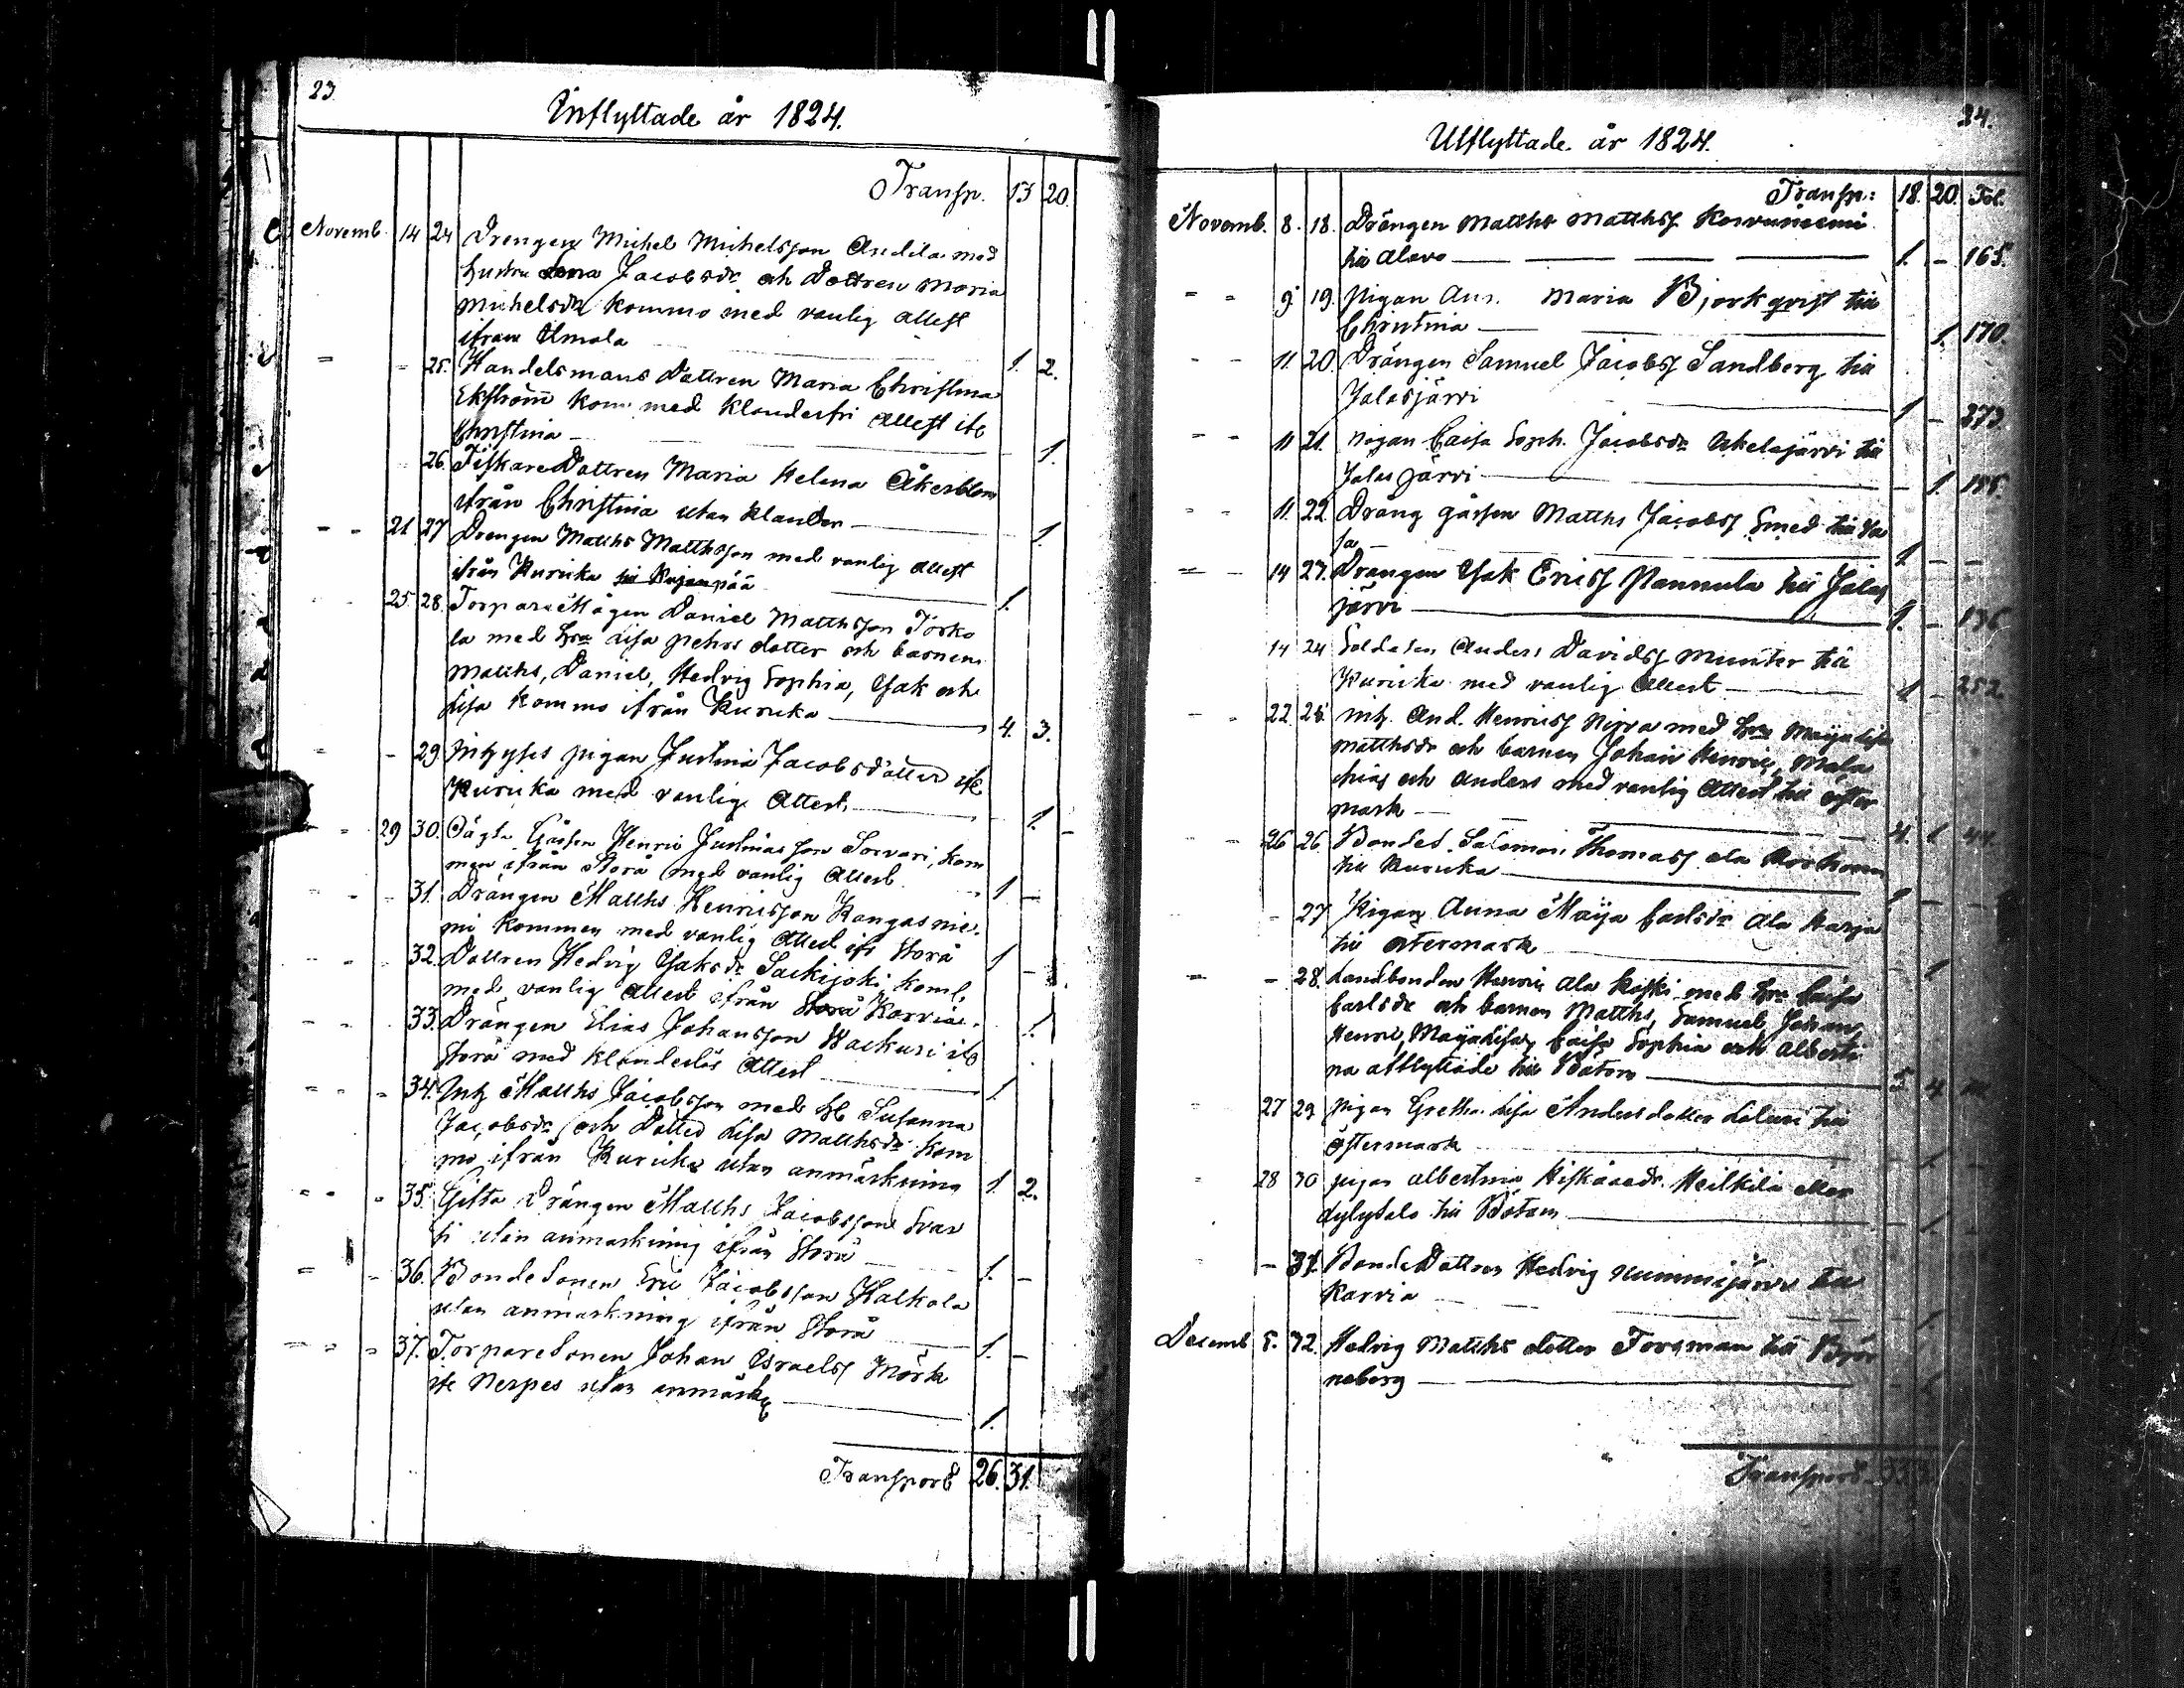 23.
Inflyttade år 1824.
Transp. 13 20.
Novemb. 14 24 Drengen Michel Michelsson Andila med
hustru Anna Jacobsdr och Dottren Maria
Michelsdr kommo med vanlig attest
ifrån Ilmola 1. 2.
- - 25. Handelsmans Dottren Maria Christina
Ekström kom med klanderfri Attest ifr
Christina 1.
26. Fiskare Dottren Maria Helena Åkerblom
ifrån Christina utan klander 1.
- - 21 27 Drengen Matths Matthsson med vanlig attest
ifrån Kurika till Kujanpää 1.
25 28. Torpare Mågen Daniel Matthsson Jorko
la med hru Lisa Pehrs dotter och barnen
Matths, Daniel, Hedvig Sophia, Isak och
Lisa kommo ifrån Kurika 4. 3.
- 29. Inhyses pigan Justina Jacobsdotter ifr
Kurika med vanlig Attest. 1.
- - 29 30. Gossen Henric Justinasson Sorvari, kom
men ifrån Storå med vanlig Attest 1 -
- - - 31. Drängen Matths Henricsson Kangasnie-
mi kommen med vanlig Attest ifr Storå 1 -
- - - 32. Dottren Hedvig Isaksdr Sackijoki, kom
med vanlig Attest ifrån Storå Karvia. 1.
- - 33. Drängen Elias Johansson Wackuri ifr
Storå med klanderlös Attest 1.
- - - 34. Inh Matths Jacobsson med h Susanna
Jacobsdr och Dotter Lisa Matthsdr kom
mo ifrån Kurika utan anmärkning 1. 2.
- - - 35. Gifta Drängen Matths Jacobsson Svar
ti utan anmärkning ifrån Storå 1. -
- - 36. Bonde Sonen Eric Jacobsson Halkola
utan anmärkning ifrån Storå 1. -
- - - 37. Torpare Sonen Johan Israelss Mörk
ifr Nerpes utan anmärkg 1.
Transport 26. 31.
24.
Utflyttade år 1824.
Transp: 18. 20. Fol.
Novemb. 8. 18. Drängen Matths Matthss Korvuniemi
till Alavo 1. - 165.
- - 9 19. Pigan Ann. Maria Bjorkqvist till
Christina 1. 170.
- - 11. 20. Drängen Samuel Jacobss Sandberg till
Jalasjärvi 1 - 273.
- - 11 21. Pigan Caisa Soph. Jacobsdr till
Jalasjärvi - 1.
- - 11. 22. Dräng gåssen Matths Jacobss Smed till Va
sa 1 - -
- - 14 23. Drängen Isak Ericss Pannula till Jalas
järvi 1. -
14 24 Soldaten Anders Davidss Munter till
Kurika med vanlig Attest 1 - 252.
- - 22. 25. Inh. And. Henricss Nirva med hru Maija Lisa
Matthsdr och barnen Johan Henric, Mala
chias och Anders med vanlig Attest till Öster
mark 4. 1 44.
- - 26 26. Bondes. Salomon Thomass ala
till Kurika 1 - -
- 27 Pigan Anna Maija Carlsdr Ala Harja
till Östermark - 1
- - 28. Landbonden Henric Ala koski med hru Caisa
Carlsdr och barnen Matths, Samuel, Johan,
Henric, Maija Lisa, Caisa Sophia och Alberti
na afflyttade till Bötom 5 4
- 27 29 Pigan Gretha Lisa Andersdotter till
Östermark - 1. -
- 28 30 pigan Albertina Heikkilä eller
till Bötom - 1. -
- 31. Bonde Dottren Hedvig Nummijärvi till
Karvia - 1
Decemb 5. 32. Hedvig Matths dotter Forsman till Björ
neborg - 1
Transport